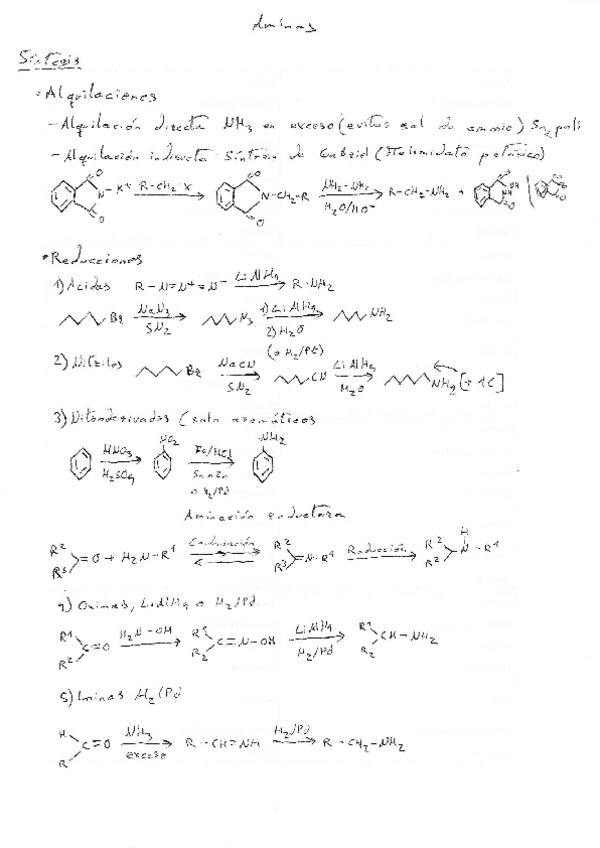 Aminas
Síntesis
• Alquilaciones
- Alquilación directa NH3 en exceso (evitar sal de amonio) SN2 poli
- Alquilación indirecta Síntesis de Gabriel (Ftalimidato potásico)
O O N- K+ R-CH2-X O O N-CH2-R NH2-NH2 H2O/HO- R-CH2-NH2 + O NH NH O
• Reducciones
1) Acidas R-N=N+=N- LiAlH4 R-NH2
Br NaN3 SN2 N3 1) LiAlH4 2) H2O NH2
2) Nitrilos Br NaCN SN2 CN (o H2/Pt) LiAlH4 H2O NH2 [+1C]
3) Nitroderivados (solo aromáticos
HNO3 H2SO4 NO2 Fe/HCl Sn o Zn o H2/Pd NH2
Aminación reductora
R2 R3 =O + H2N-R1 R2 R3 =N-R1 Reducción R2 R2 H N-R1
4) Oximas, LiAlH4 o H2/Pd
R1 R2 C=O H2N-OH R1 R2 C=N-OH LiAlH4 H2/Pd R1 R2 CH-NH2
5) Iminas H2/Pd
H R C=O NH3 exceso R-CH=NH H2/Pd R-CH2-NH2